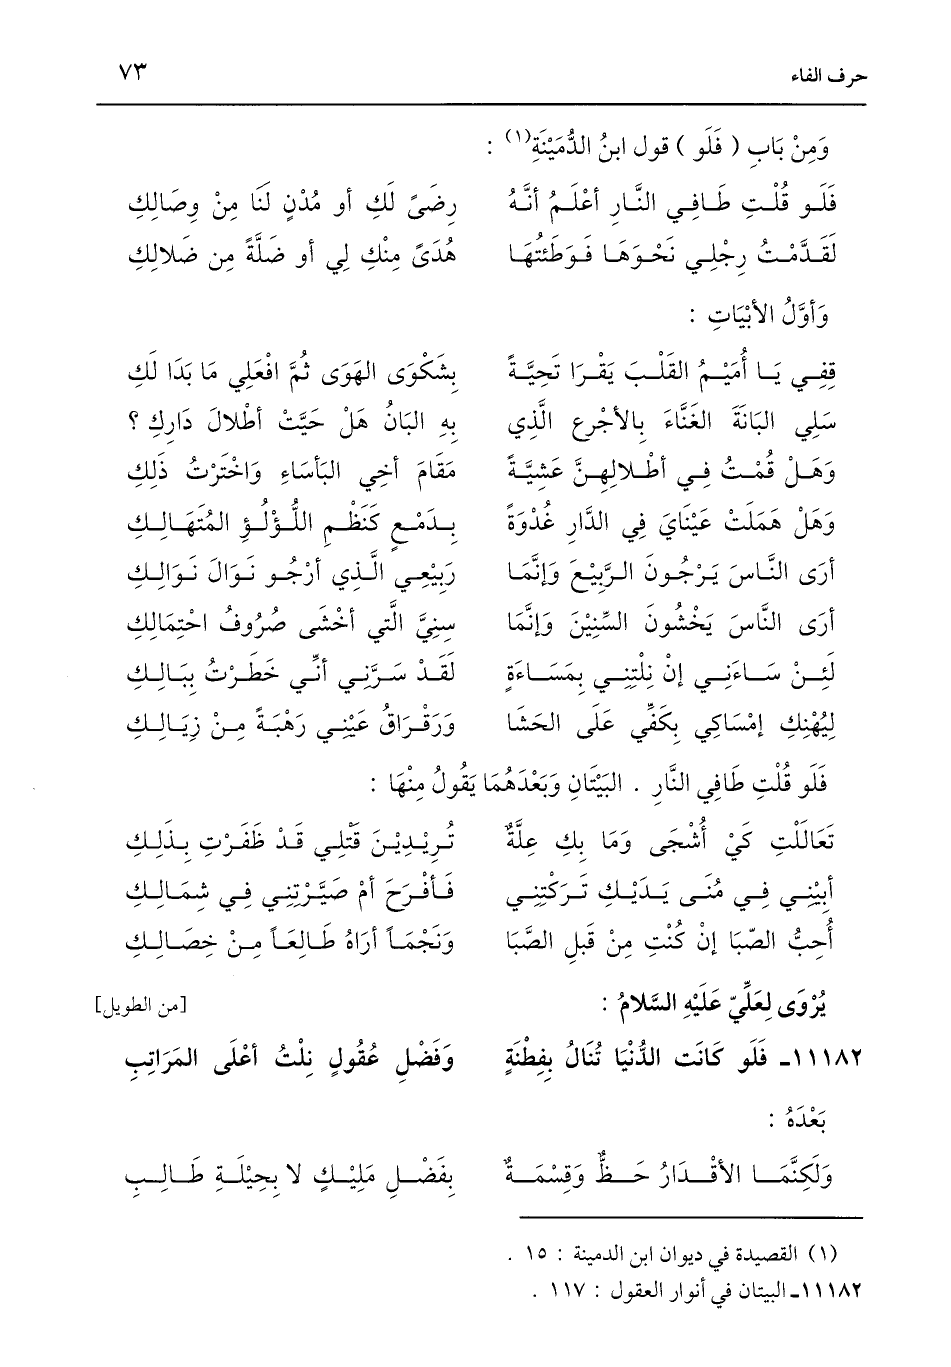 حرف الفاء ٧٣
وَمِنْ بَابِ ( فَلَو ) قول ابنُ الدُّمَيْنَةِ(١) :
فَلَـو قُلْـتِ طَـافِـي النَّـارِ أعْلَـمُ أنَّـهُ رِضَىً لَكِ أو مُدْنٍ لَنَا مِنْ وِصَالِكِ
لَقَـدَّمْـتُ رِجْلِـي نَحْـوَهَـا فَـوَطَئْتُهَـا هُدَىً مِنْكِ لِي أو ضَلَّةً مِن ضَلالِكِ
وَأوَّلُ الأبْيَاتِ :
قِفِـي يَـا أُمَيْـمُ القَلْـبَ يَقْـرَا تَحِيَّـةً بِشَكْوَى الهَوَى ثُمَّ افْعَلِي مَا بَدَا لَكِ
سَلِي البَانَةَ الغَنَّاءَ بِالأجْرعِ الَّذِي بِهِ البَانُ هَلْ حَيَّتْ أطْلالَ دَارِكِ ؟
وَهَـلْ قُمْـتُ فِـي أطْـلالِهِـنَّ عَشِيَّـةً مَقَامَ أخِي البَأسَاءِ وَاخْتَرْتُ ذَلِكِ
وَهَلْ هَمَلَتْ عَيْنَايَ فِي الدَّارِ غُدْوَةً بِـدَمْـعٍ كَنَظْـمِ اللُّـؤْلُـؤِ المُتَهَـالِـكِ
أرَى النَّـاسَ يَـرْجُـونَ الـرَّبِيْـعَ وَإنَّمَـا رَبِيْعِـي الَّـذِي أرْجُـو نَـوَالَ نَـوَالِـكِ
أرَى النَّاسَ يَخْشُونَ السِّنِيْنَ وَإنَّمَا سِنِيَّ الَّتِي أخْشَى صُرُوفُ احْتِمَالِكِ
لَئِـنْ سَـاءَنِـي إنْ نِلْتِنِـي بِمَسَـاءَةٍ لَقَـدْ سَـرَّنِـي أنِّـي خَطَـرْتُ بِبَـالِـكِ
لِيُهْنِكِ إمْسَاكِي بِكَفِّي عَلَى الحَشَا وَرَقْـرَاقُ عَيْنِـي رَهْبَـةً مِـنْ زِيَـالِـكِ
فَلَو قُلْتِ طَافِي النَّارِ . البَيْتَانِ وَبَعْدَهُمَا يَقُولُ مِنْهَا :
تَعَالَلْتِ كَيْ أُشْجَى وَمَا بِكِ عِلَّةٌ تُـرِيْـدِيْـنَ قَتْلِـي قَـدْ ظَفَـرْتِ بِـذَلِـكِ
أبِيْنِـي فِـي مُنَـى يَـدَيْـكِ تَـرَكْتِنِـي فَـأفْـرَحَ أمْ صَيَّـرْتِنِـي فِـي شِمَـالِـكِ
أُحِبُّ الصّبَا إنْ كُنْتِ مِنْ قَبلِ الصَّبَا وَنَجْمَـاً أرَاهُ طَـالِعَـاً مِـنْ خِصَـالِـكِ
يُرْوَى لِعَلِّيّ عَلَيْهِ السَّلامُ : [من الطويل]
١١١٨٢ـ فَلَو كَانَت الدُّنْيَا تُنَالُ بِفِطْنَةٍ وَفَضْلِ عُقُولٍ نِلْتُ أعْلَى المَرَاتِبِ
بَعْدَهُ :
وَلَكِنَّمَـا الأقْـدَارُ حَـظٌّ وَقِسْمَـةٌ بِفَضْـلِ مَلِيْـكٍ لا بِحِيْلَـةِ طَـالِـبِ
(١) القصيدة في ديوان ابن الدمينة : ١٥ .
١١١٨٢ـ البيتان في أنوار العقول : ١١٧ .